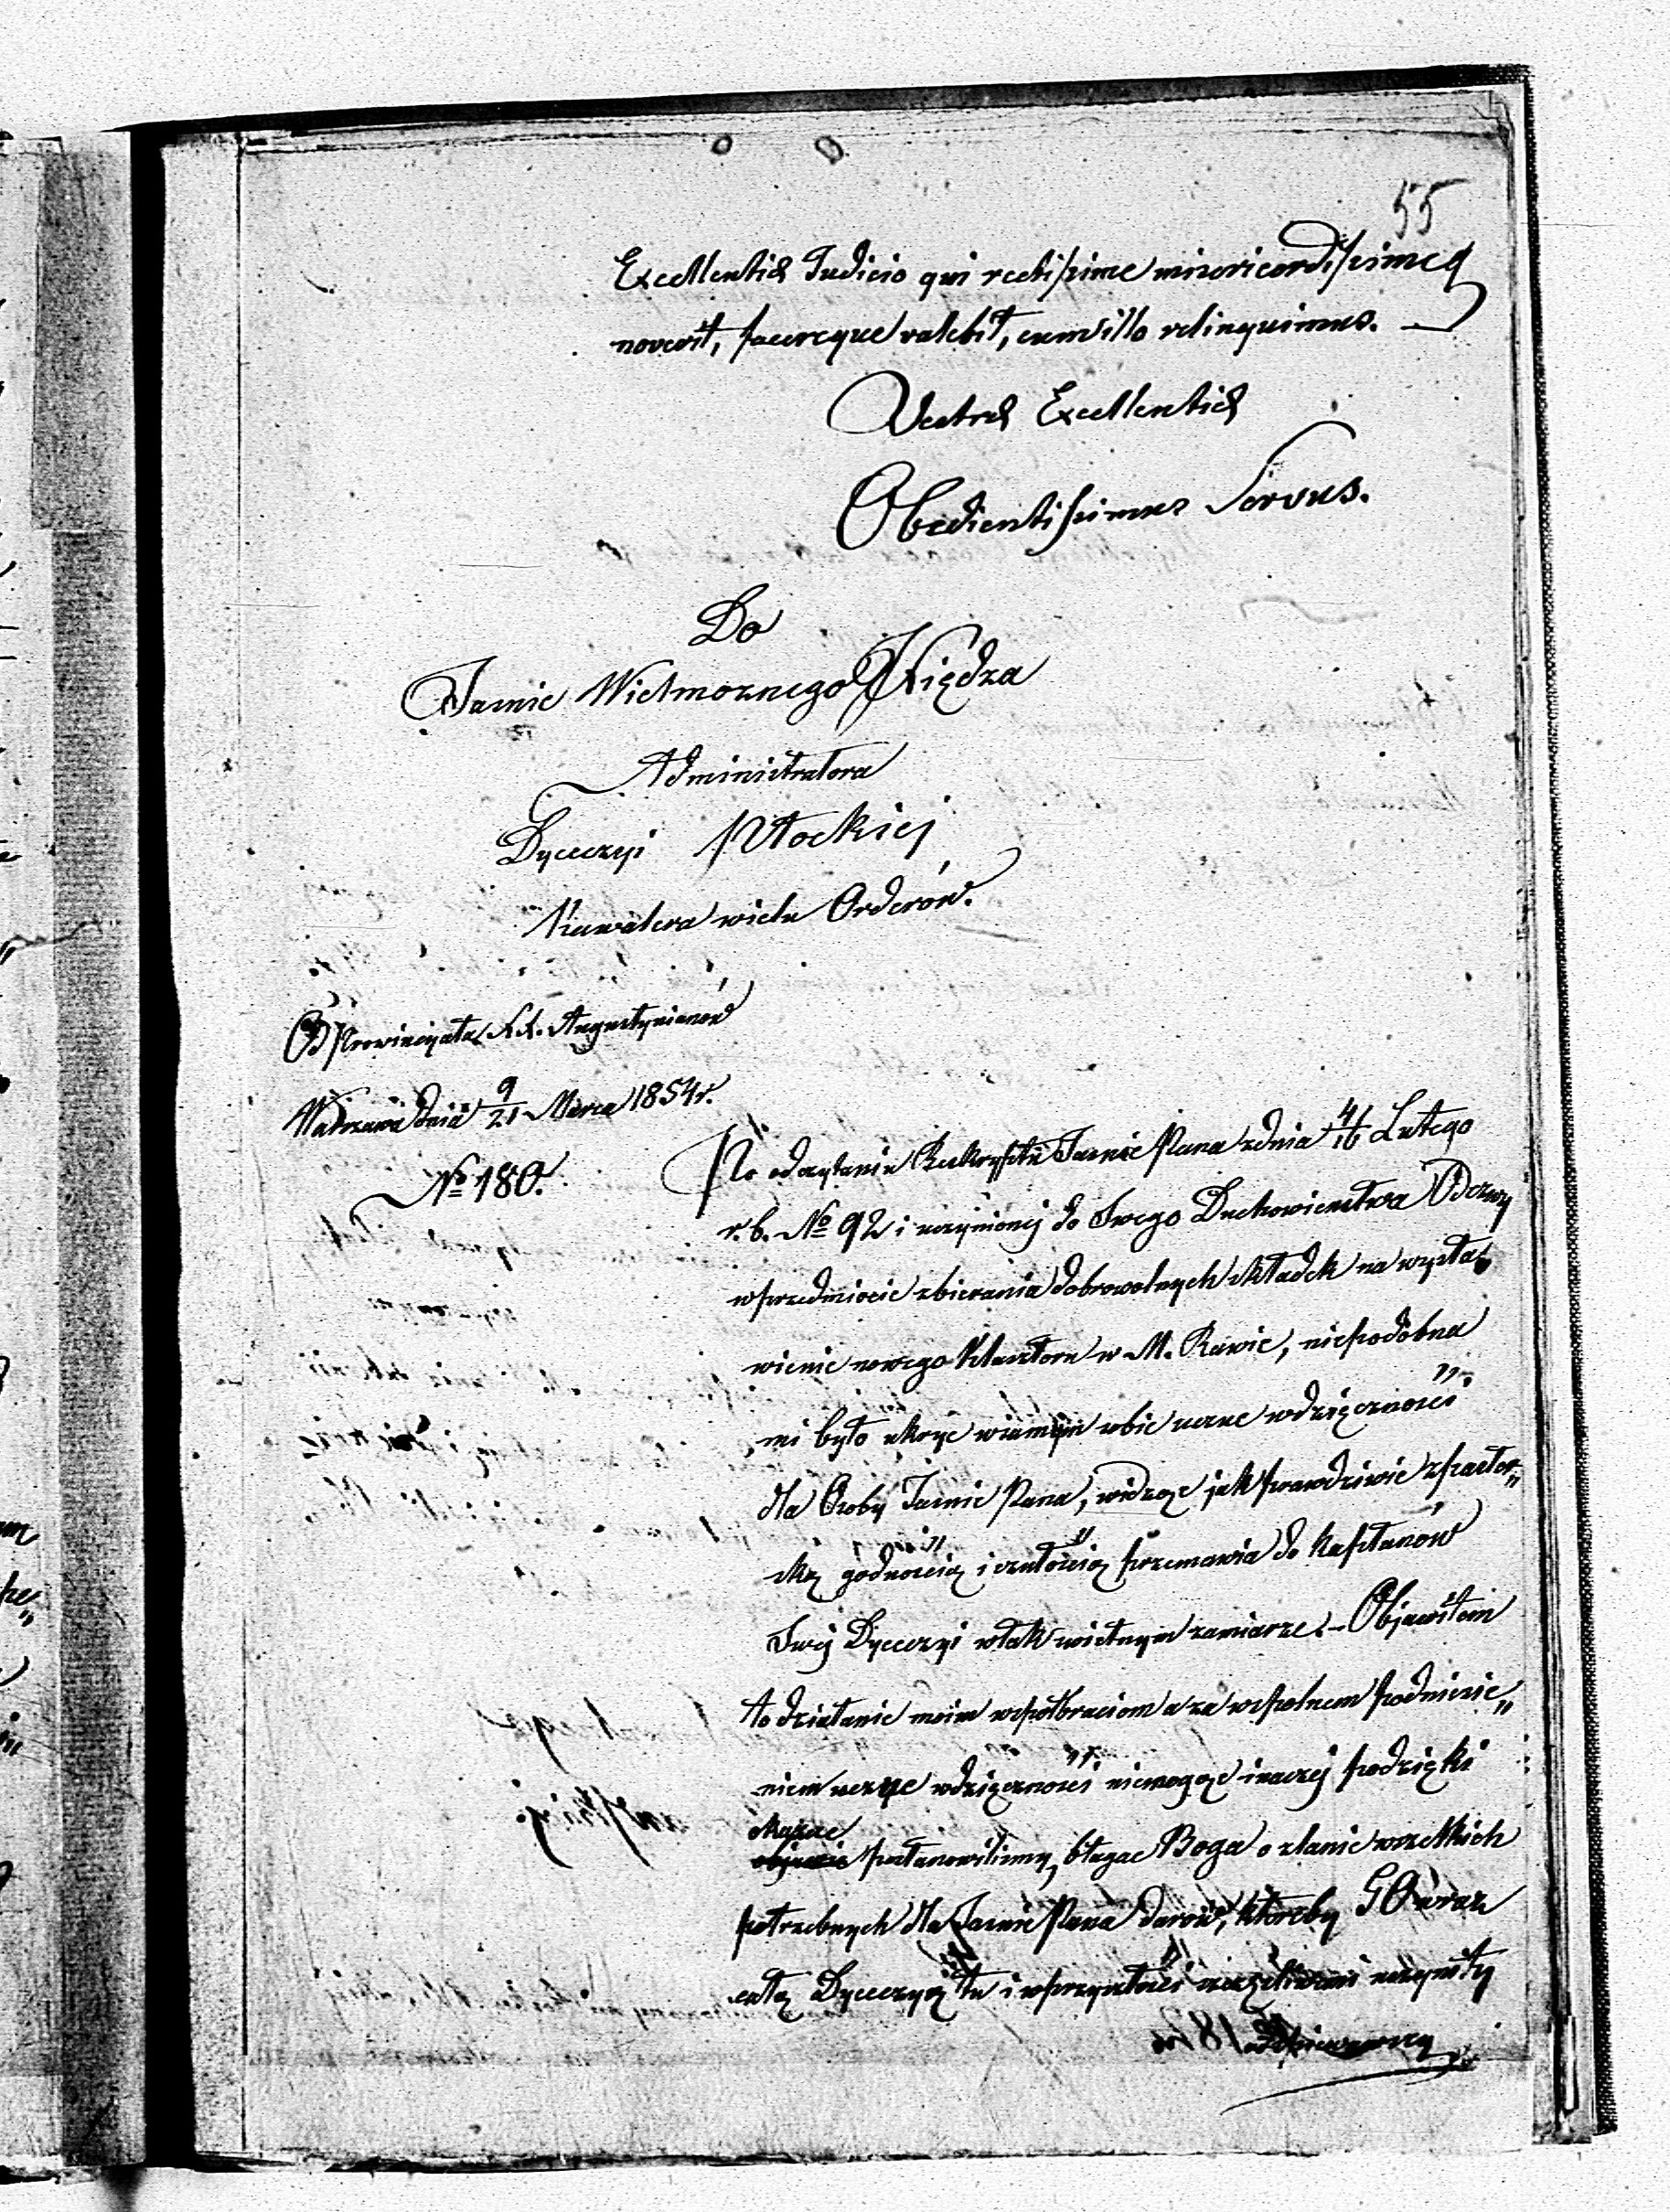 55
Excellentiæ Judicio qui rectissime misericordissimeq
noverit, facereque valebit, cum illo relinquimus.
Vestræ Excellentiæ
Obedientissimus Servus.
Do
Jaśnie Wielmoznego Księdza
Administratora
Dyecezyi Płockiej
Kawalera wielu Orderów.
Od Prowincyała XX. Augustyanów
Warszawa dnia 9/21 Marca 1854 r.
№ 180.
Po odczytaniu Reskryptu Jasnie Pana z dnia 4/16 Lutego
r. b. № 92 i uczynionej do Swego Duchowienstwa Odezwy
w przedmiocie zbierania dobrowolnych składek na wysta-
wienie nowego Klasztoru w M. Rawie, niepodobna
mi było ukryc w samym sobie uczuc wdzięczności
dla Osoby Jasnie Pana, widząc jak prawdziwie z paster„
ską godnością i czułością przemawia do kapłanów
Swej Dyecezyi w tak swietnym zamiarze. – Objawiłem
to działanie moim współbraciom a za wspolnem podniesie„
niem uczuc wdzięczności niemogąc inaczej podzięki
okazac
postanowilismy, błagac Boga o zlanie wszelkich
potrzebnych dla Jasnie Pana darów, ktoreby GO wraz
całą Dyecezyą tu i w przyszłości uczyniły